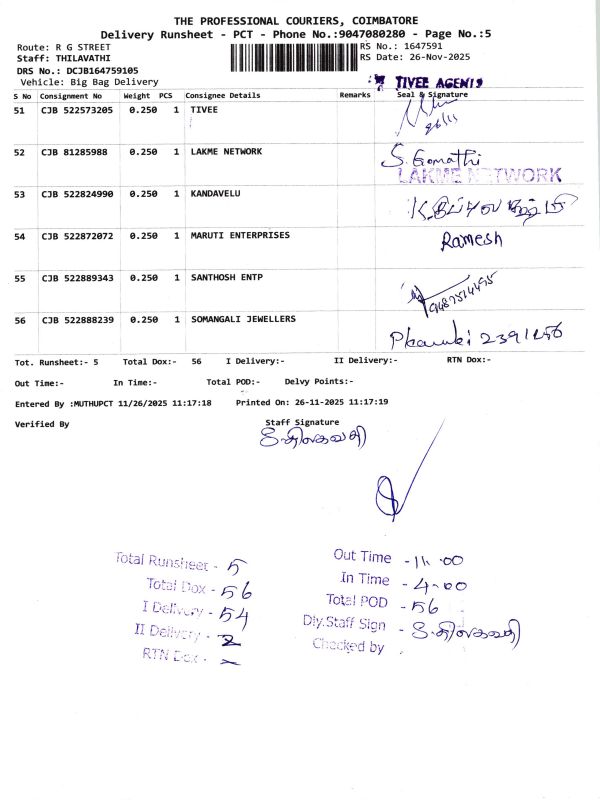 THE PROFESSIONAL COURIERS, COIMBATORE
Delivery Runsheet - PCT - Phone No.:9047080280 - Page No.:5
Route: R G STREET
RS No.: 1647591
Staff: THILAVATHI
RS Date: 26-Nov-2025
DRS No.: DCJB164759105
Vehicle: Big Bag Delivery
TIVEE AGENIS
S No Consignment No Weight PCS Consignee Details Remarks Seal & Signature
51 CJB 522573205 0.250 1 TIVEE
52 CJB 81285988 0.250 1 LAKME NETWORK S. Gomathi
LAKME NETWORK
53 CJB 522824990 0.250 1 KANDAVELU
54 CJB 522872072 0.250 1 MARUTI ENTERPRISES Ramesh
55 CJB 522889343 0.250 1 SANTHOSH ENTP
56 CJB 522888239 0.250 1 SOMANGALI JEWELLERS
Tot. Runsheet:- 5 Total Dox:- 56 I Delivery:- II Delivery:- RTN Dox:-
Out Time:- In Time:- Total POD:- Delvy Points:-
Entered By :MUTHUPCT 11/26/2025 11:17:18 Printed On: 26-11-2025 11:17:19
Verified By Staff Signature
S.திலகவதி
Total Runsheet - 5
Total Dox - 56
I Delivery - 54
II Delivery - 2
RTN Dox -
Out Time - 11.00
In Time - 4.00
Total POD - 56
Dly.Staff Sign - S.திலகவதி
Checked by